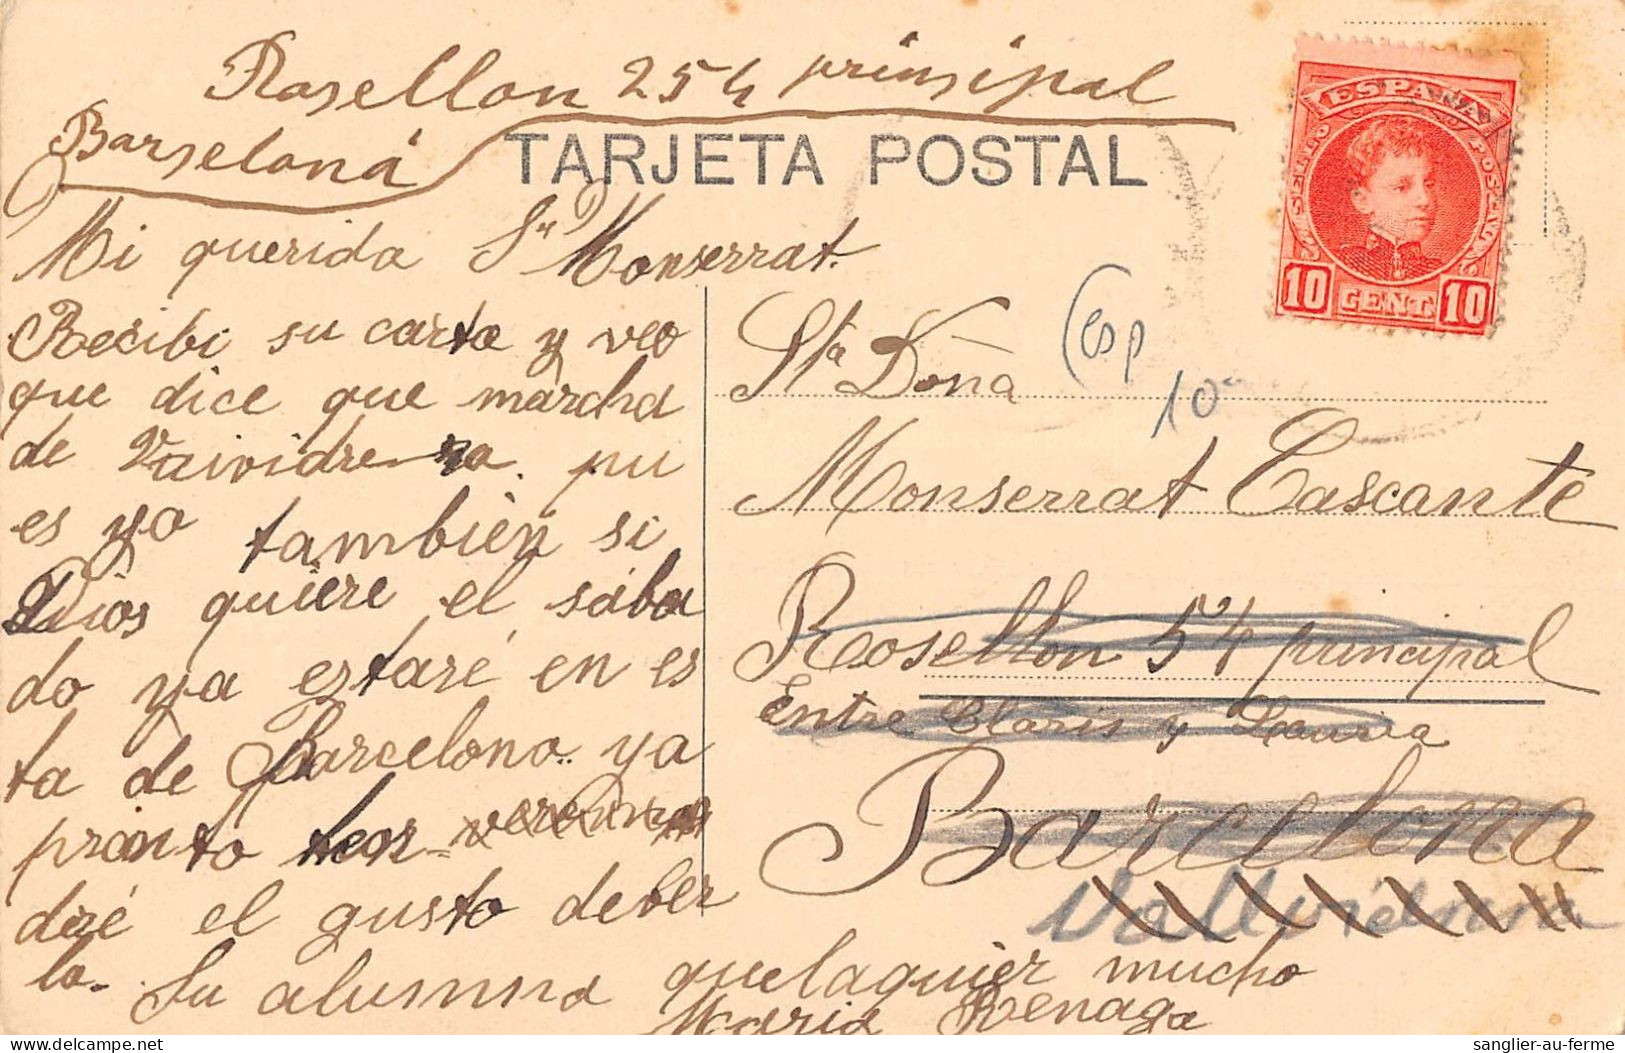 Rosellon 254 prinsipal
Barseloná
TARJETA POSTAL
Mi querida Sra Monserrat.
Recibi su carta y veo
que dice que marcha
de Vaividrera pu
es yo también si
Dios quiere el sába
do ya estaré en es
ta de Barcelona ya
pronto
diré el gusto deber
la. Su alumna quelaquier mucho
Maria Renaga
ESPAÑA
SELLO POSTAL
10 CENT. 10
esp
10
Sta Doña
Monserrat Cascante
Rosellon 54 principal
Entre Claris y Lauria
Barcelona
Vallvidrera
sanglier-au-ferme
delcampe.net